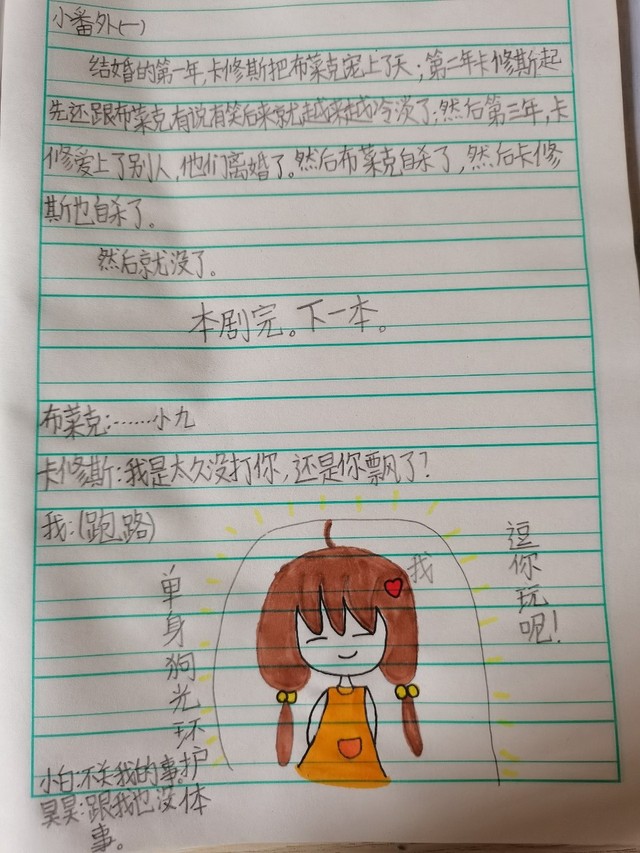 小番外(一)
结婚的第一年,卡修斯把布莱克宠上了天;第二年卡修斯起
先还跟布莱克有说有笑后来就越来越冷淡了;然后第三年,卡
修爱上了别人,他们离婚了。然后布莱克自杀了,然后卡修
斯也自杀了。
然后就没了。
本剧完。下一本。
布莱克:……小九
卡修斯:我是太久没打你,还是你飘了?
我:(跑路)
我
逗你玩呢!
单身狗光环护体
小白:不关我的事。
昊昊:跟我也没
事。